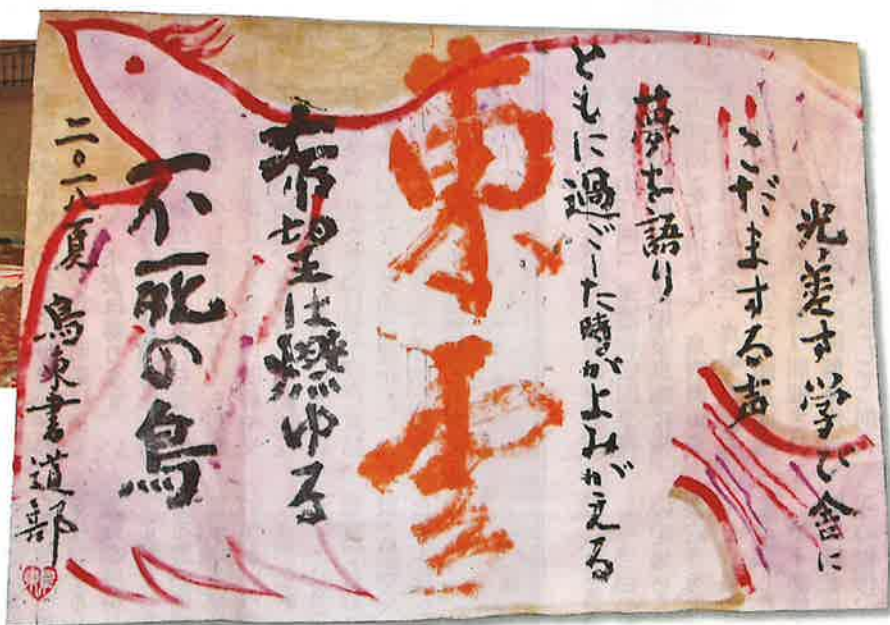 光差す学び舎に
こだまする声
夢を語り
ともに過ごした時がよみがえる
東雲
希望は燃ゆる
不死の鳥
二〇一八夏 鳥東書道部